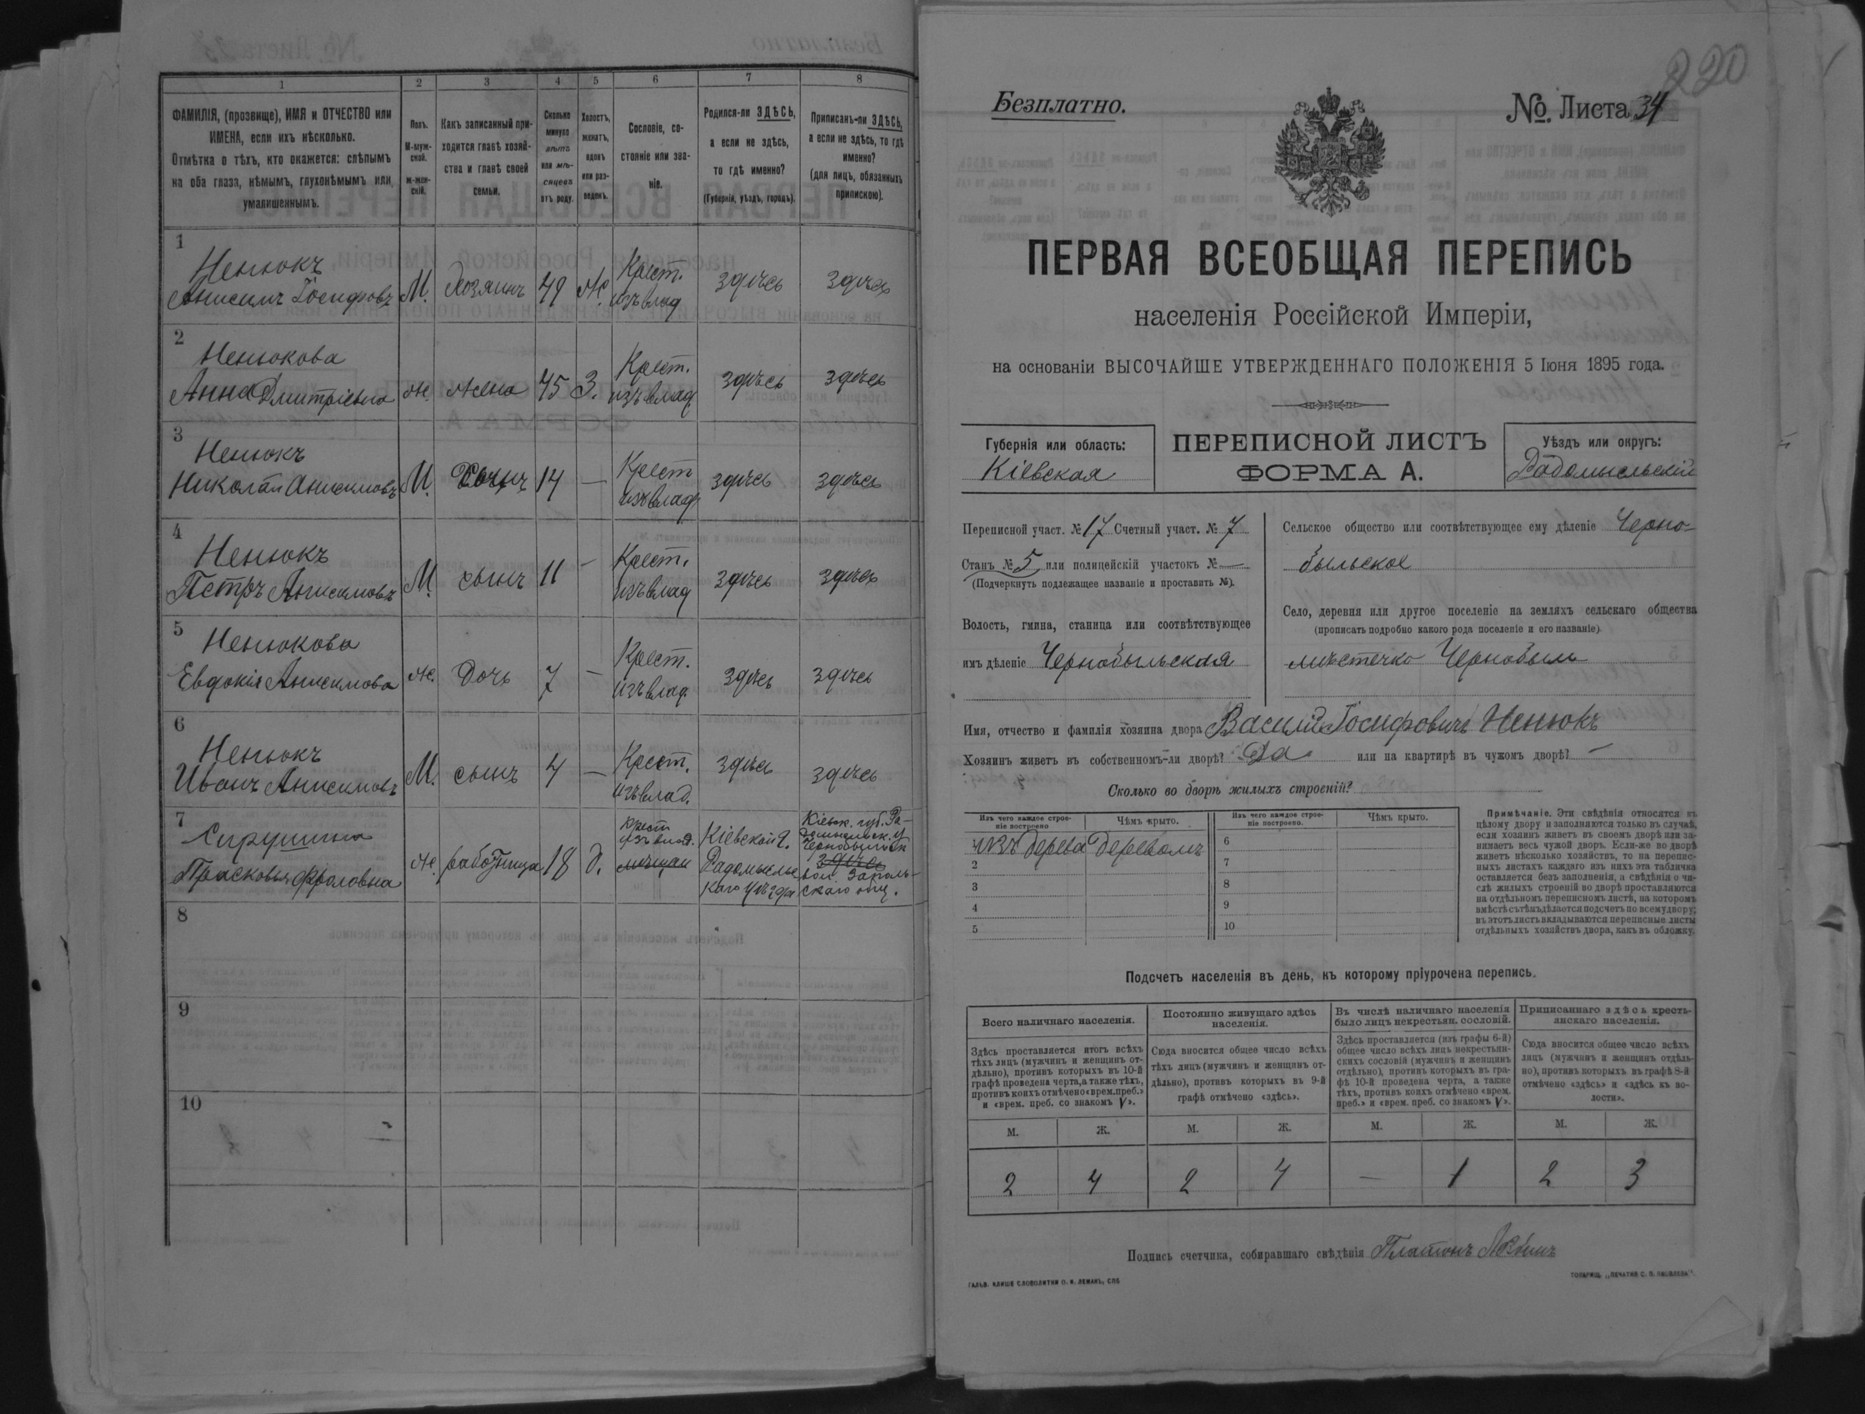 1 2 3 4 5 6 7 8
ФАМИЛІЯ, (прозвище), ИМЯ и ОТЧЕСТВО или
ИМЕНА, если ихъ нѣсколько.
Отмѣтка о тѣхъ, кто окажется: слѣпымъ
на оба глаза, нѣмымъ, глухонѣмымъ или
умалишеннымъ.
Полъ.
М-муж-
ской.
ж-жен-
скій.
Какъ записанный при-
ходится главѣ хозяй-
ства и главѣ своей
семьи.
Сколько
минуло
лѣтъ
или мѣ-
сяцевъ
отъ роду.
Холостъ,
женатъ,
вдовъ
или раз-
веденъ.
Сословіе, со-
стояніе или зва-
ніе.
Родился-ли ЗДѢСЬ,
а если не здѣсь,
то гдѣ именно?
(Губернія, уѣздъ, городъ).
Приписанъ-ли ЗДѢСЬ,
а если не здѣсь, то гдѣ
именно?
(для лицъ, обязанныхъ
припискою).
1
Ненюкъ
Анисимъ Іосифовъ М. Хозяинъ 49 Ж. Крест. изъ влад здѣсь здѣсь
2
Ненюкова
Анна Дмитріевна ж. жена 45 З. Крест. изъ влад здѣсь здѣсь
3
Ненюкъ
Николай Анисимовъ М. Сынъ 14 — Крест изъ влад здѣсь здѣсь
4
Ненюкъ
Петръ Анисимовъ М. сынъ 11 — Крест. изъ влад здѣсь здѣсь
5
Ненюкова
Евдокія Анисимова ж. Дочь 7 — Крест. изъ влад здѣсь здѣсь
6
Ненюкъ
Иванъ Анисимовъ М. сынъ 4 — Крест. изъ влад. здѣсь здѣсь
7
Прасковья Фроловна ж. работница 18 д.
крест
изъ влад.
мещан
Кіевской г.
Радомысль-
каго уѣзда
Кіевск. губ. Ра-
здѣсь
скаго общ.
8
9
10
220
Безплатно.
№. Листа 34
ПЕРВАЯ ВСЕОБЩАЯ ПЕРЕПИСЬ
населенія Россійской Имперіи,
на основаніи ВЫСОЧАЙШЕ УТВЕРЖДЕННАГО ПОЛОЖЕНІЯ 5 Іюня 1895 года.
Губернія или область:
Кіевская
ПЕРЕПИСНОЙ ЛИСТЪ
ФОРМА А.
Уѣздъ или округъ:
Радомысльскій
Переписной участ. № 17 Счетный участ. № 7
Станъ № 5 или полицейскій участокъ № —
(Подчеркнуть подлежащее названіе и проставить №).
Волость, гмина, станица или соотвѣтствующее
имъ дѣленіе Чернобыльская
Сельское общество или соотвѣтствующее ему дѣленіе Черно-
быльское
Село, деревня или другое поселеніе на земляхъ сельскаго общества
(прописать подробно какого рода поселеніе и его названіе)
мѣстечко Чернобыль
Имя, отчество и фамилія хозяина двора Василій Іосифовичъ Ненюкъ
Хозяинъ живетъ въ собственномъ-ли дворѣ? Да или на квартирѣ въ чужомъ дворѣ? —
Сколько во дворѣ жилыхъ строеній?
Изъ чего каждое строе-
ніе построено
Чѣмъ крыто.
Изъ чего каждое строе-
ніе построено.
Чѣмъ крыто.
изъ дерева деревомъ
2
3
4
5
6
7
8
9
10
Примѣчаніе. Эти свѣдѣнія относятся къ
цѣлому двору и заполняются только въ случаѣ,
если хозяинъ живетъ въ своемъ дворѣ или за-
нимаетъ весь чужой дворъ. Если-же во дворѣ
живетъ нѣсколько хозяйствъ, то на перепис-
ныхъ листахъ каждаго изъ нихъ эта табличка
оставляется безъ заполненія, а свѣдѣнія о чи-
слѣ жилыхъ строеній во дворѣ проставляются
на отдѣльномъ переписномъ листѣ, на которомъ
вмѣстѣ съ тѣмъ дѣлается подсчетъ по всему двору;
въ этотъ листъ вкладываются переписные листы
отдѣльныхъ хозяйствъ двора, какъ въ обложку.
Подсчетъ населенія въ день, къ которому пріурочена перепись.
Всего наличнаго населенія.
Здѣсь проставляется итогъ всѣхъ
тѣхъ лицъ (мужчинъ и женщинъ от-
дѣльно), противъ которыхъ въ 10-й
графѣ проведена черта, а также тѣхъ,
противъ коихъ отмѣчено «врем. преб.»
и «врем. преб. со знакомъ V».
Постоянно живущаго здѣсь
населенія.
Сюда вносится общее число всѣхъ
тѣхъ лицъ (мужчинъ и женщинъ от-
дѣльно), противъ которыхъ въ 9-й
графѣ отмѣчено «здѣсь».
Въ числѣ наличнаго населенія
было лицъ некрестьян. сословій.
Здѣсь проставляется (изъ графы 6-й)
общее число всѣхъ лицъ некрестьян-
скихъ сословій (мужчинъ и женщинъ
отдѣльно), противъ которыхъ въ гра-
фѣ 10-й проведена черта, а также
тѣхъ, противъ коихъ отмѣчено «врем.
преб.» и «врем. преб. со знакомъ V».
Приписаннаго здѣсь кресть-
янскаго населенія.
Сюда вносится общее число всѣхъ
лицъ (мужчинъ и женщинъ отдѣль-
но), противъ которыхъ въ графѣ 8-й
отмѣчено «здѣсь» и «здѣсь въ во-
лости».
М. Ж. М. Ж. М. Ж. М. Ж.
2 4 2 4 — 1 2 3
Подпись счетчика, собиравшаго свѣдѣнія Платонъ
ГАЛЬВ. КЛИШЕ СЛОВОЛИТНИ О. И. ЛЕМАНЪ, СПБ
ТОВАРИЩ. „ПЕЧАТНЯ С. П. ЯКОВЛЕВА".